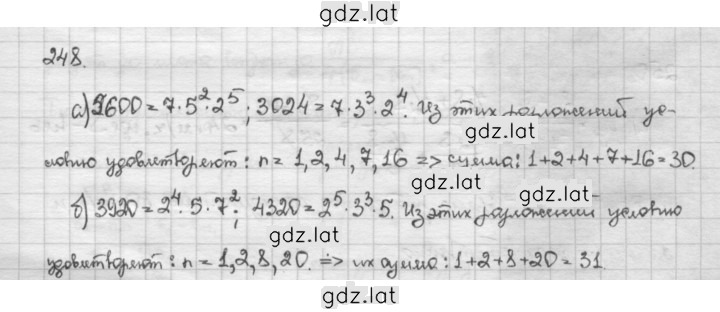 gdz.lat
248.
а) 5600 = 7·5²·2⁵; 3024 = 7·3³·2⁴. Из этих разложений ус-
gdz.lat
ловию удовлетворяют: n = 1, 2, 4, 7, 16 => сумма: 1+2+4+7+16=30.
gdz.lat
б) 3920 = 2⁴·5·7²; 4320 = 2⁵·3³·5. Из этих разложений условию
gdz.lat
удовлетворяют: n = 1, 2, 8, 20. => их сумма: 1+2+8+20 = 31.
gdz.lat